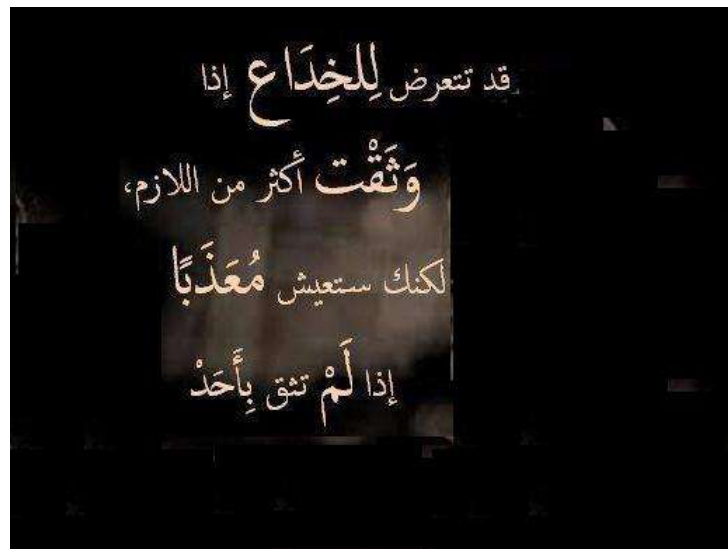 قد تتعرض لِلخِدَاع إذا
وَثَقْت أكثر من اللازم،
لكنك ستعيش مُعَذَبًا
إذا لَمْ تثق بِأَحَدْ